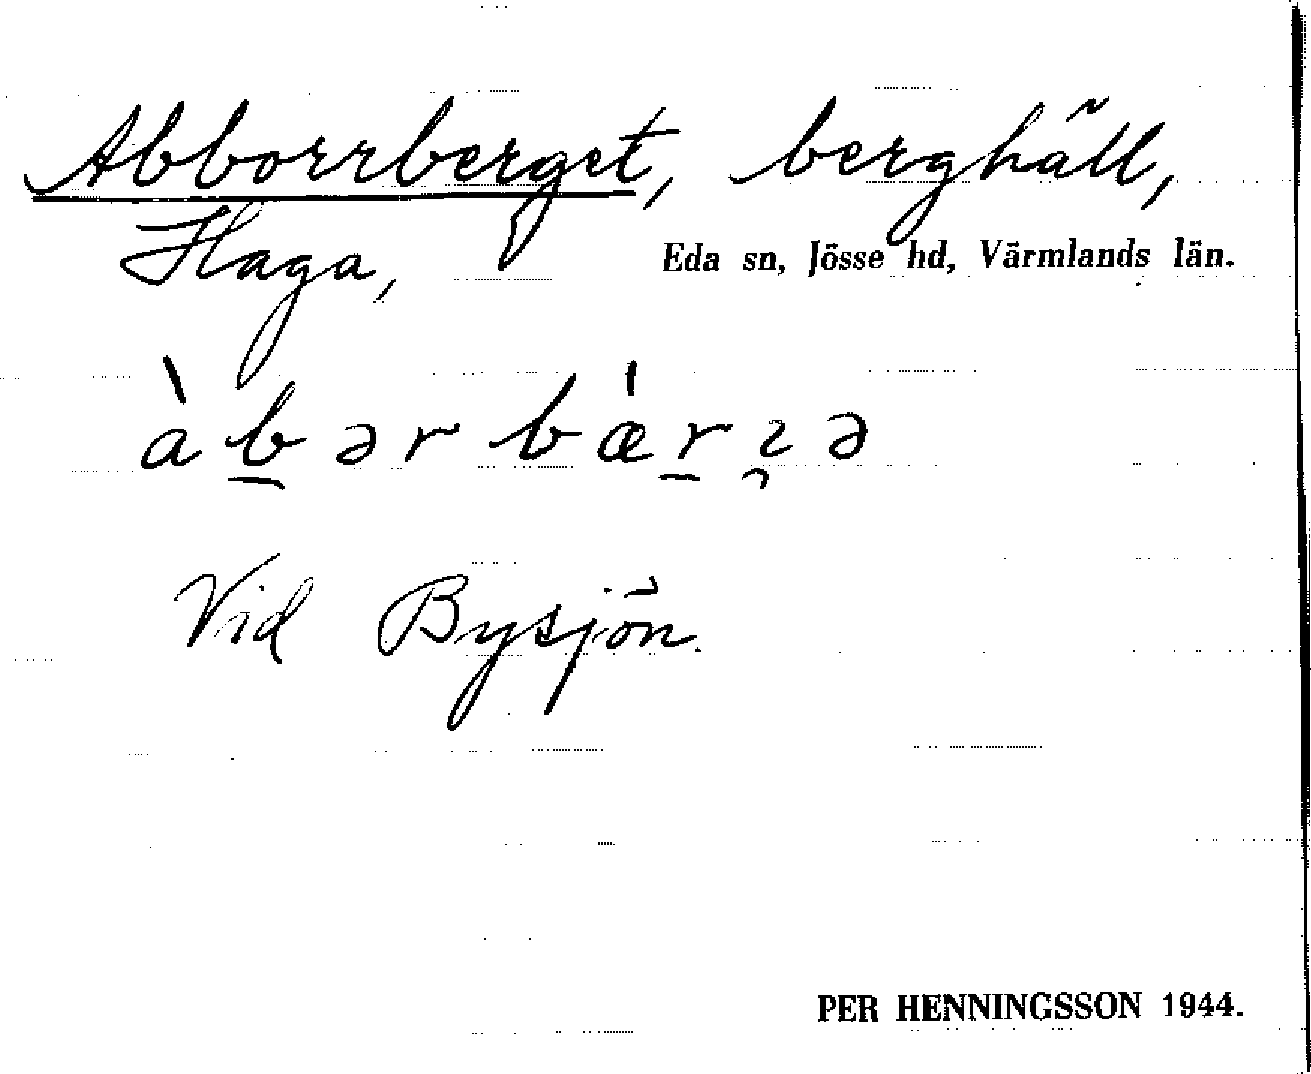 Abborrberget, berghäll,
Haga, Eda sn, Jösse hd, Värmlands län.
àb̲ər bǽr̲ɿ̯ə
Vid Bysjön.
PER HENNINGSSON 1944.